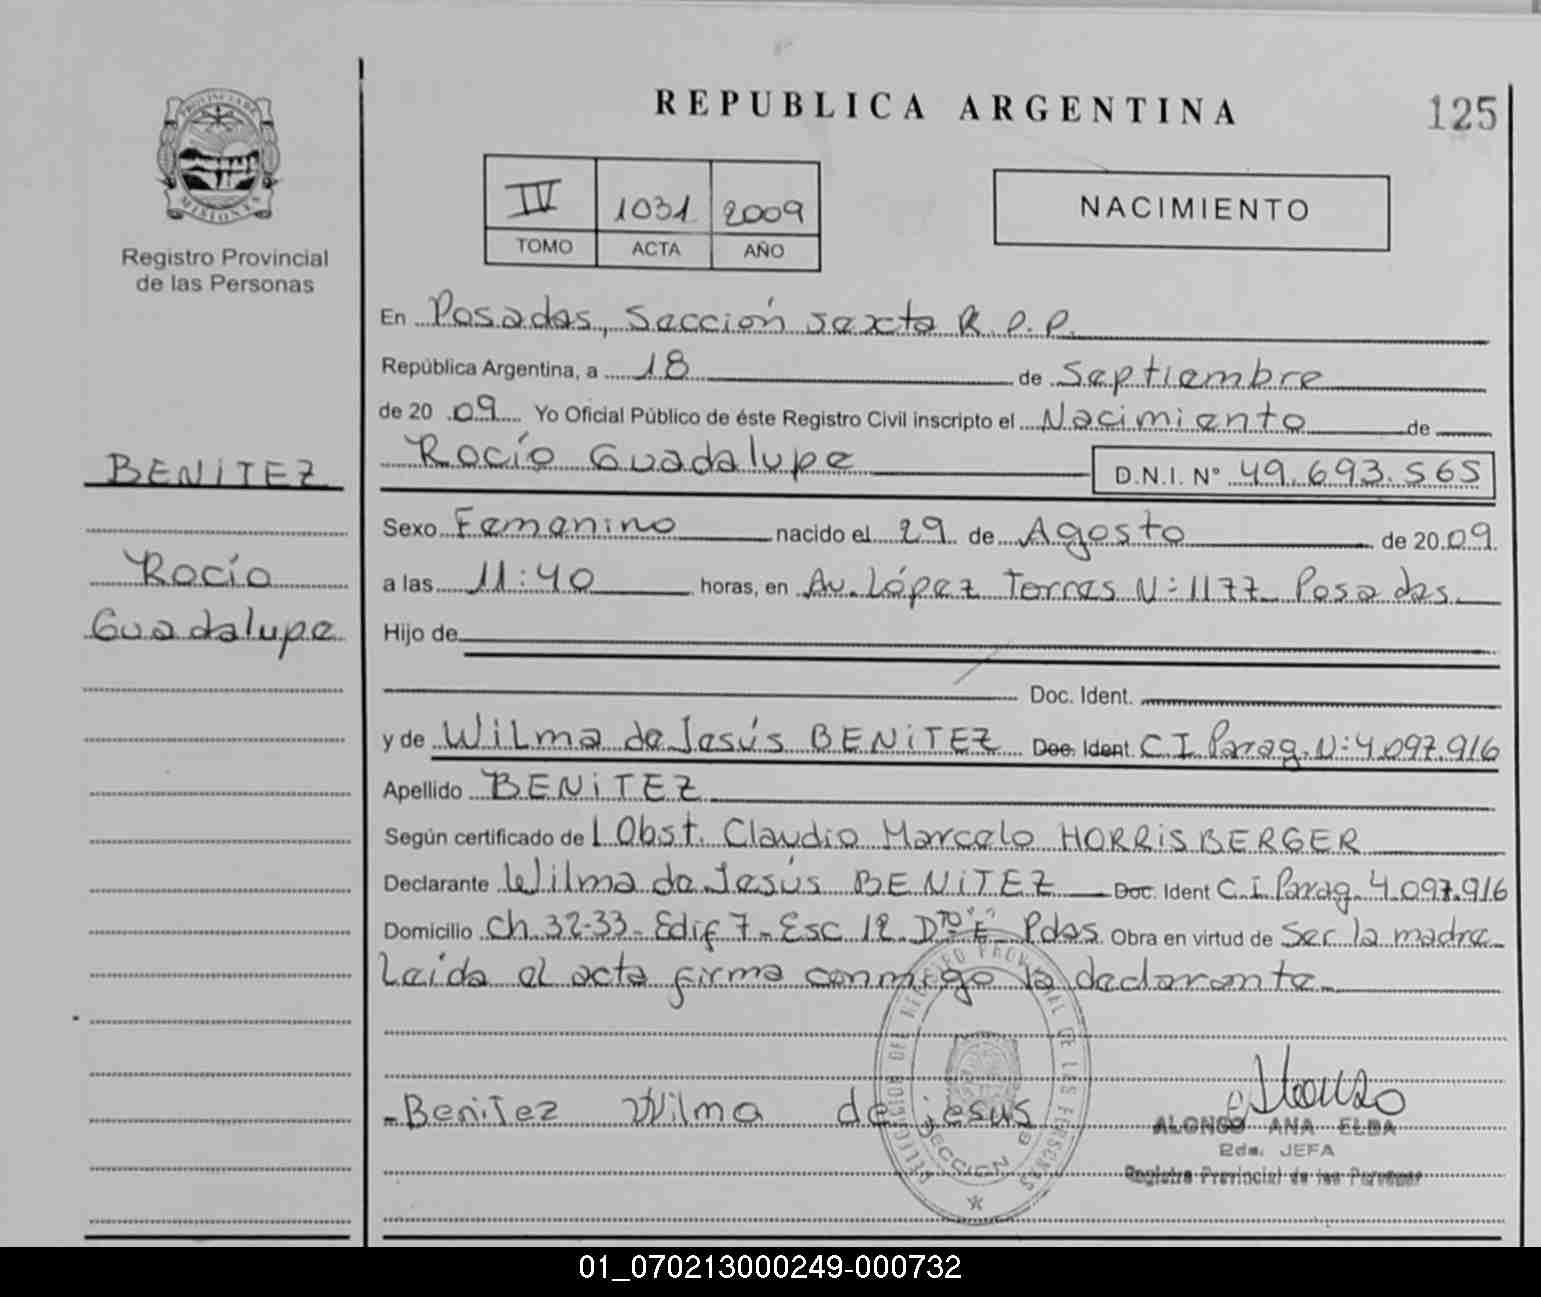 REPUBLICA ARGENTINA
125
PROVINCIA DE MISIONES
Registro Provincial
de las Personas
IV 1031 2009
TOMO ACTA AÑO
NACIMIENTO
En Posadas, Sección sexta R.P.P.
República Argentina, a 18 de Septiembre
de 20 09 Yo Oficial Público de éste Registro Civil inscripto el Nacimiento de
Rocío Guadalupe D.N.I. Nº 49.693.565
BENITEZ
Rocío
Guadalupe
Sexo Femenino nacido el 29 de Agosto de 20 09
a las 11:40 horas, en Av. López Torres N: 1177 Posadas
Hijo de
Doc. Ident.
y de Wilma de Jesús BENITEZ Doc. Ident. C.I. Parag. N: 4.097.916
Apellido BENITEZ
Según certificado de Obst. Claudio Marcelo HORRISBERGER
Declarante Wilma de Jesús BENITEZ Doc. Ident C.I. Parag. 4.097.916
Domicilio Ch. 32-33 - Edif 7 - Esc 12 Dto "E" Pdas. Obra en virtud de Ser la madre
Leída el acta firma conmigo la declarante
Benitez Wilma de jesus
DELEGACION DEL REGISTRO PROVINCIAL DE LAS PERSONAS
SECCION 6
ALONSO ANA ELBA
2da. JEFA
Registro Provincial de las Personas
01_070213000249-000732